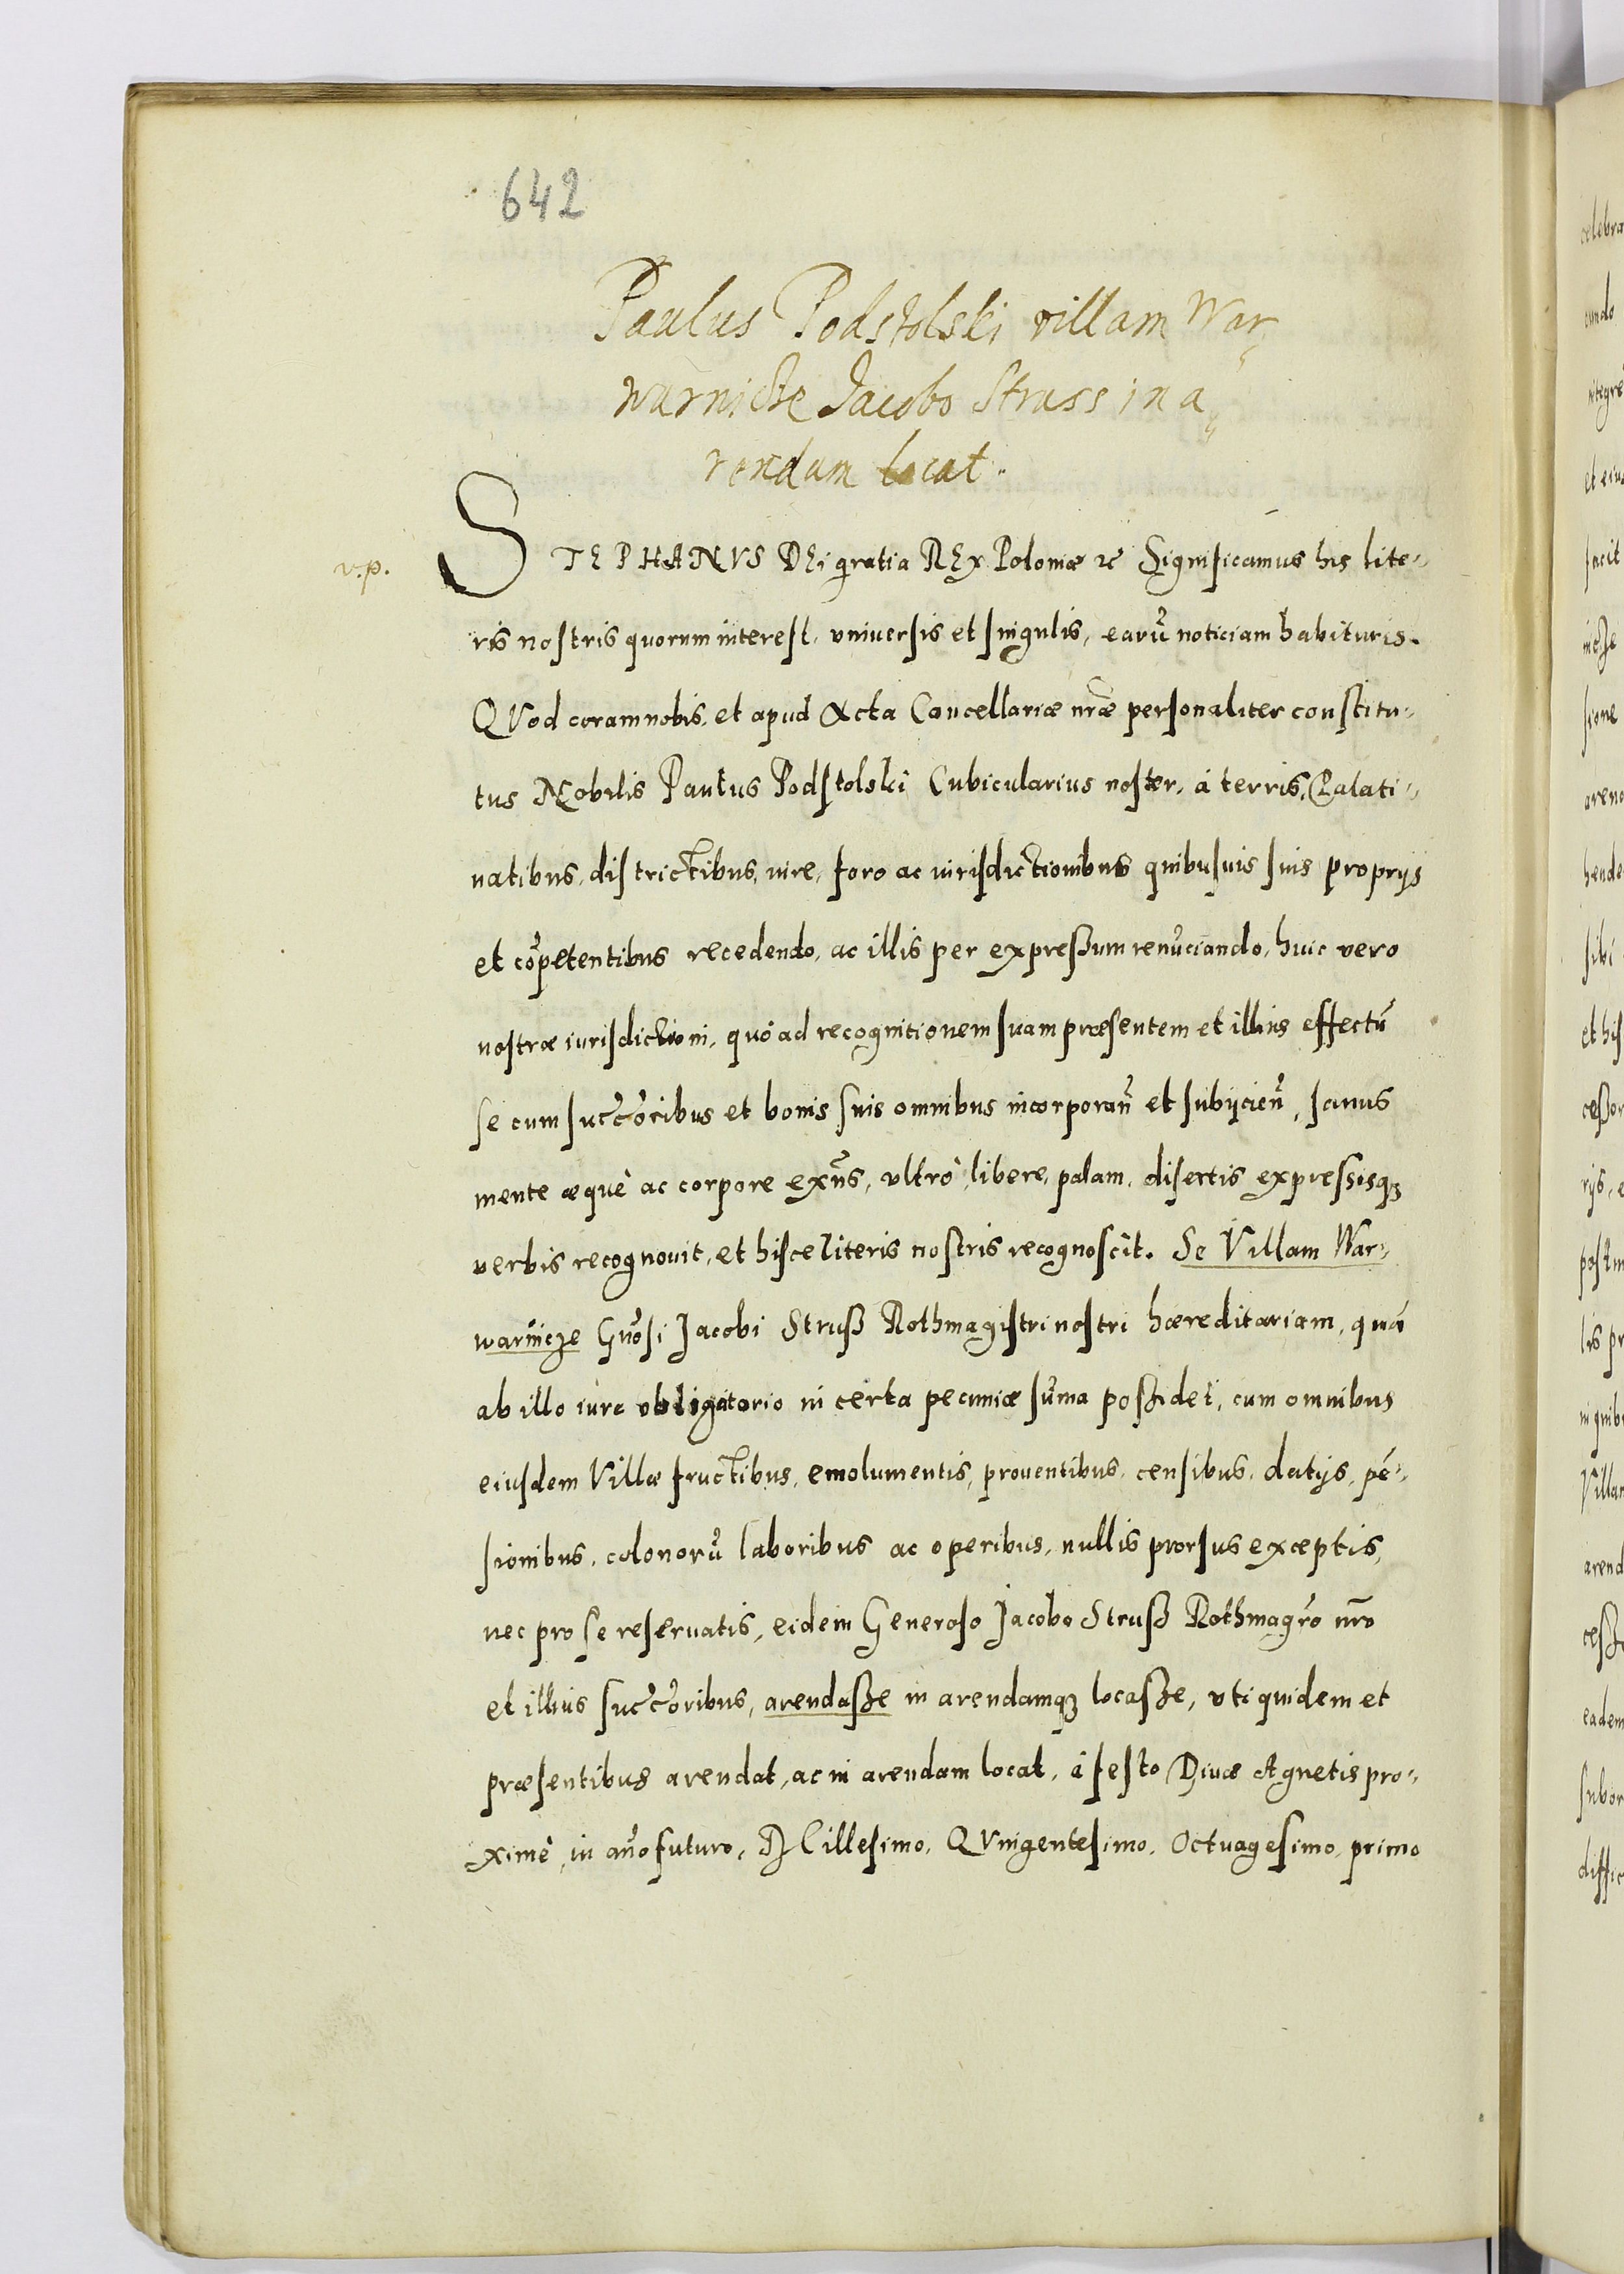 642
Paulus Podstolski villam War„
warnicze Jacobo Struss in a„
rendam locat.
v. p.
STEPHANVS DEi gratia REx Poloniæ ꝛc̃ Significamus his lite„
ris nostris quorum interest, vniuersis et singulis, earũ noticiam habituris.
QVod coram nobis, et apud Acta Cancellariæ nr̃æ personaliter constitu„
tus Nobilis Paulus Podstolski Cubicularius noster, à terris, Palati„
natibus, districtibus, iure, foro ac iurisdictionibus quibusuis suis proprijs
et cõpetentibus recedendo, ac illis per expreßum renũciando, huic vero
nostræ iurisdictioni, quò ad recognitionem suam præsentem et illius effectũ
se cum succ̃oribus et bonis suis omnibus incorporañ et subijcieñ, sanus
mente æquè ac corpore exñs, vltrò libere, palam, disertis expressisqꝫ
verbis recognouit, et hisce literis nostris recognoscit. Se Villam War„
warnicze Gñosi Jacobi Struß Rothmagistri nostri hæreditariam, quã
ab illo iure obligatorio in certa pecuniæ sum̃a poßidet, cum omnibus
eiusdem Villæ fructibus, emolumentis, prouentibus, censibus, datijs, pẽ„
sionibus, colonorũ laboribus ac operibus, nullis prorsus exceptis,
nec pro se reseruatis, eidem Generoso Jacobo Struß Rothmagr̃o nr̃o
et illius succ̃oribus, arendaße in arendamqꝫ locaße, vti quidem et
præsentibus arendat, ac in arendam locat, à festo Diuæ Agnetis pro„
ximè, in añofuturo, Millesimo, QVuigentesimo, Octuagesimo, primo